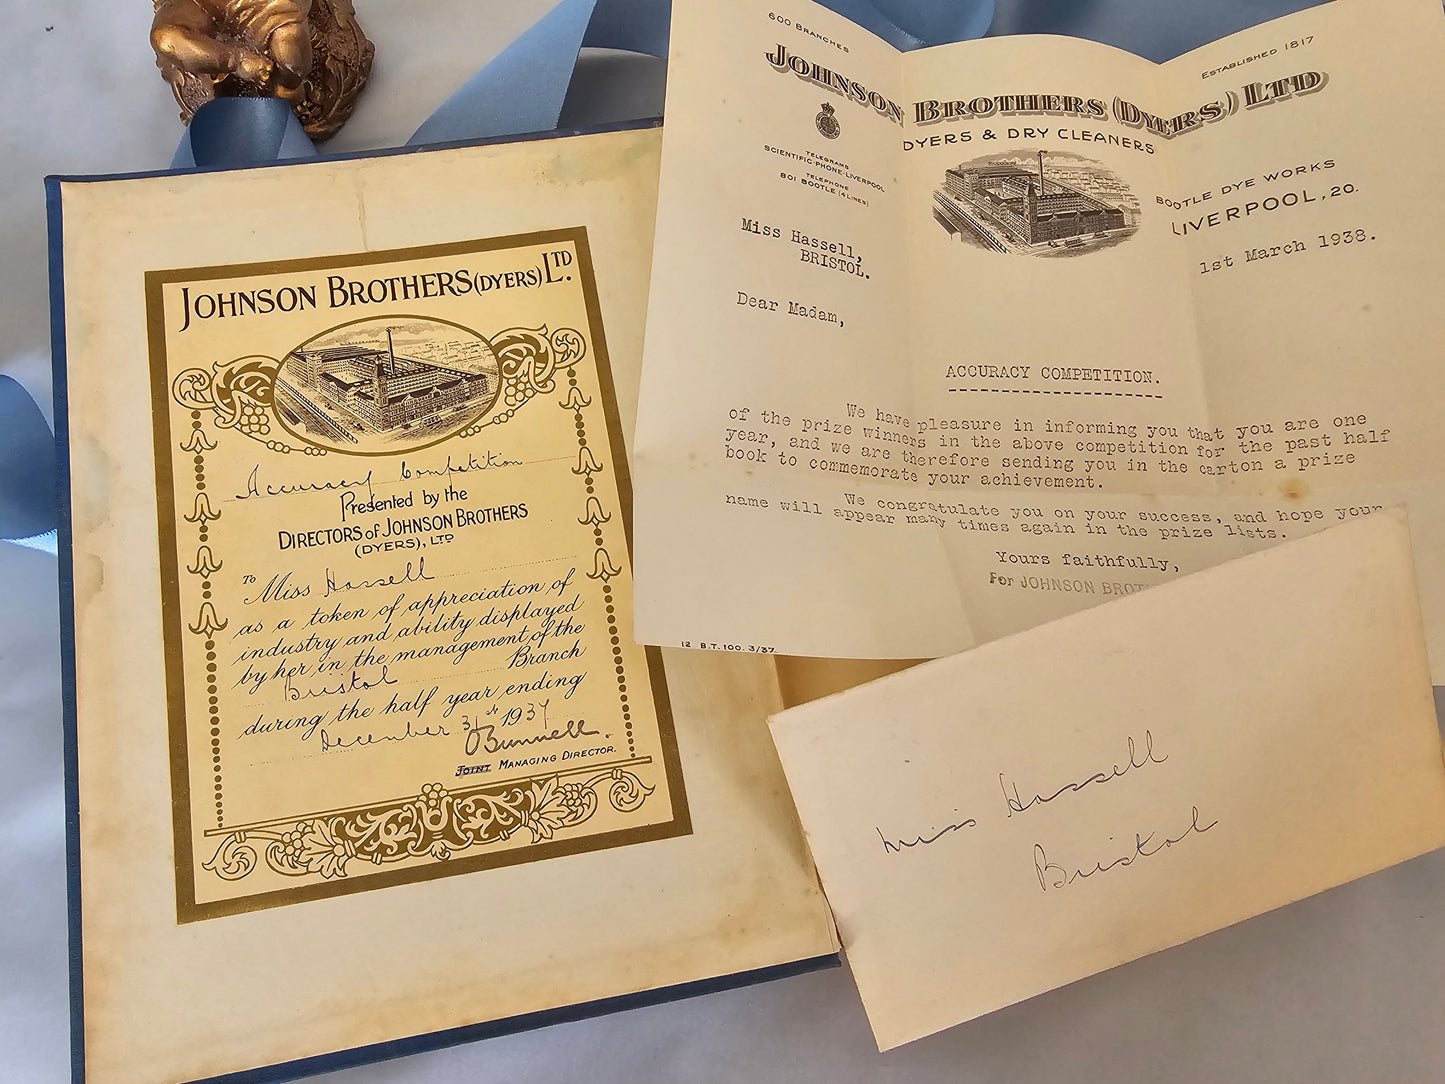 JOHNSON BROTHERS (DYERS) LTD.
Accuracy Competition
Presented by the
DIRECTORS of JOHNSON BROTHERS
(DYERS), LTD
To Miss Hassell
as a token of appreciation of
industry and ability displayed
by her in the management of the
Bristol Branch
during the half year ending
December 31st 1937
JOINT MANAGING DIRECTOR.
600 BRANCHES
ESTABLISHED 1817
JOHNSON BROTHERS (DYERS) LTD
DYERS & DRY CLEANERS
TELEGRAMS
SCIENTIFIC-PHONE-LIVERPOOL
TELEPHONE
801 BOOTLE (4 LINES)
BOOTLE DYE WORKS
LIVERPOOL, 20.
1st March 1938.
Miss Hassell,
BRISTOL.
Dear Madam,
ACCURACY COMPETITION.
We have pleasure in informing you that you are one
of the prize winners in the above competition for the past half
year, and we are therefore sending you in the carton a prize
book to commemorate your achievement.
We congratulate you on your success, and hope your
name will appear many times again in the prize lists.
Yours faithfully,
For JOHNSON BROT
12 B.T. 100. 3/37.
Miss Hassell
Bristol